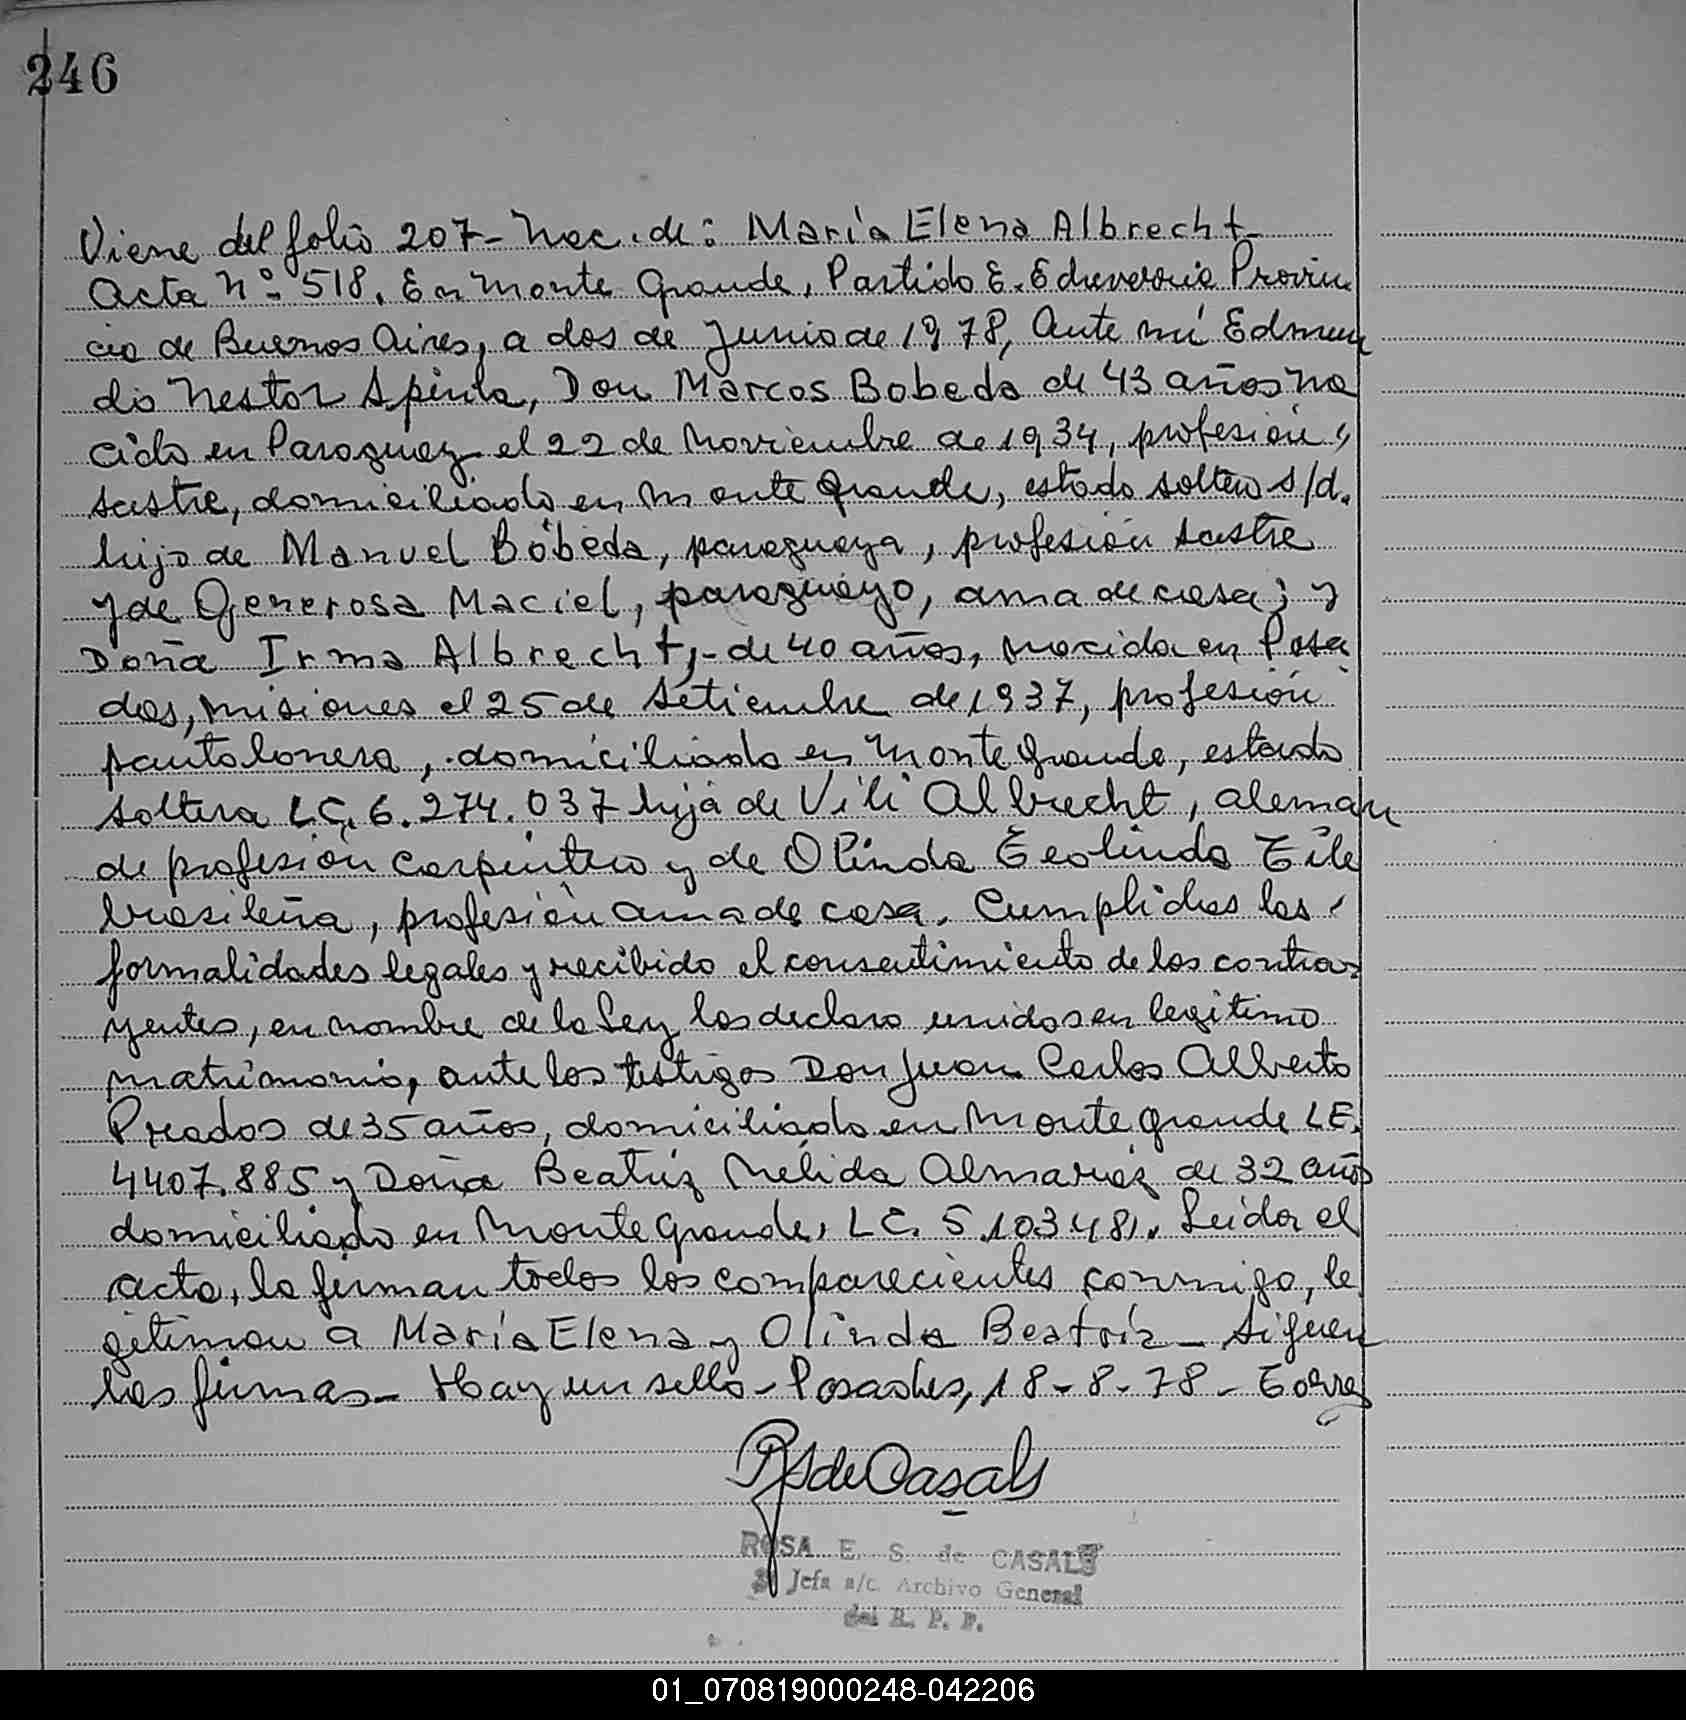 246
Viene del folio 207- Nac. de: María Elena Albrecht-
Acta Nº 518. En Monte Grande, Partido E. Echeverria Provin
cia de Buenos Aires, a dos de Junio de 1978, Ante mí Edmun
do Nestor Spinla, Don Marcos Bobeda de 43 años na
cido en Paraguay el 22 de Noviembre de 1934, profesión
sastre, domiciliado en Monte Grande, estado soltero s/d.
hijo de Manuel Bobeda, paraguaya, profesión sastre
y de Generosa Maciel, paraguayo, ama de casa; y
Doña Irma Albrecht,- de 40 años, nacida en Posa
das, Misiones el 25 de Setiembre de 1937, profesión
pantalonera, domiciliada en Monte Grande, estado
soltera LC. 6.274.037 hija de Vili Albrecht, aleman
de profesión carpintero y de Olinda
brasileña, profesión ama de casa. Cumplidas las
formalidades legales y recibido el consentimiento de los contra
yentes, en nombre de la Ley los declaro unidos en legítimo
matrimonio, ante los testigos Don Juan Carlos Alberto
Prados de 35 años, domiciliado en Monte Grande LE.
4407.885 y Doña Beatriz Nélida Almaráz de 32 años
domiciliado en Monte Grande, LC. 5.103481. Leída el
acta, la firman todos los comparecientes conmigo, le
gitiman a María Elena y Olinda Beatríz_ Siguen
las firmas_ Hay un sello - Posadas, 18-8-78 - Torres
RS de Casals
ROSA E. S. de CASALS
Jefa a/c. Archivo General
del R. P. P.
01_070819000248-042206